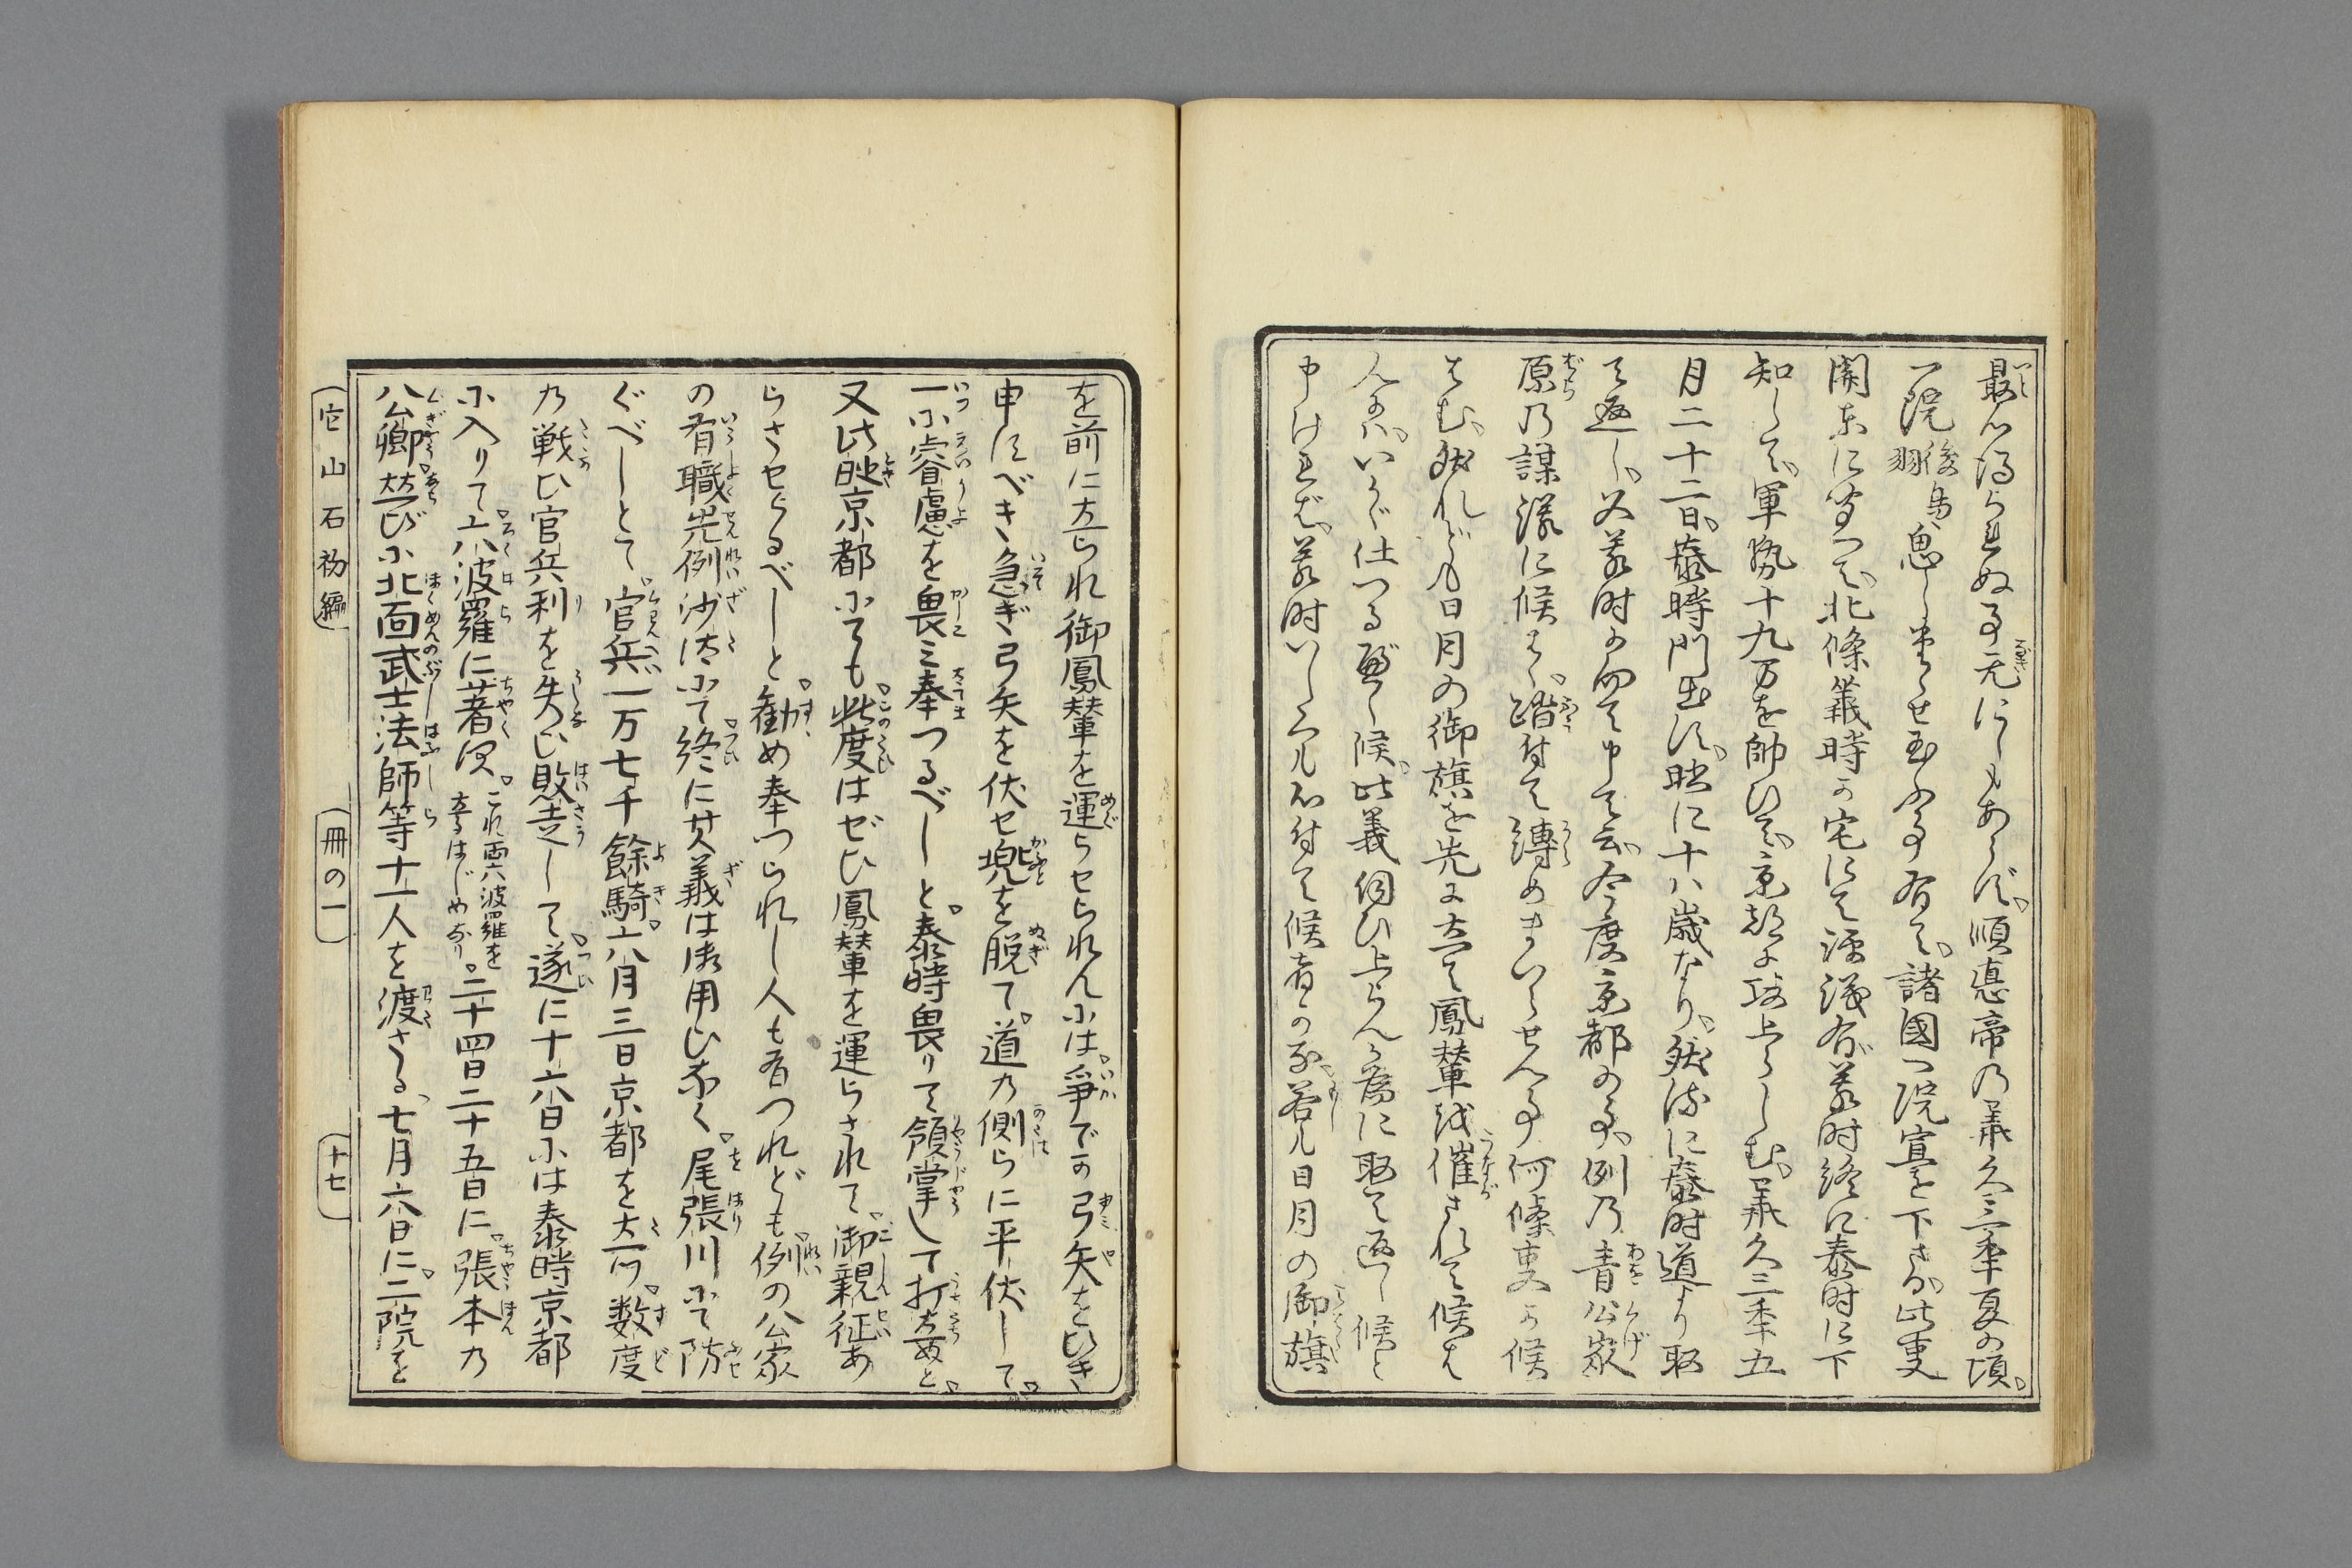 最心得られぬ事无にしもあらず。順悳帝乃羕久三年夏の頃。
一院後鳥羽思しめさせ玉ふ事有て、諸國へ院宣を下さる此事
関東に聞へて、北條義時の宅にて評議有、義時終に泰時に下
知して、軍勢十九万を帥ひて、京都に攻上らしむ、羕久三年五
月二十二日、泰時門出す、時に十八歳なり、然るに泰時道より取
て返し、又義時に向て申て云、今度京都の事、例乃青公家
原乃謀議に候はゞ、踏付て縛めまいらせん事何條事か候
はむ、然れども日月の御旗を先に立て鳳輦を催されて候は
んには、いかゞ仕つる可く候、此義伺ひ上らん為に取て返し候と
申ければ、義時いしくも心付て候者かな、若し日月の御旗
を前に立られ御鳳輦を運らせられんには、爭でか弓矢をひき
申すべき、急ぎ弓矢を伏せ兜を脱て、道乃側らに平伏して、
一に睿慮を畏み奉つるべしと、泰時畏りて領掌して打立ぬと、
又此時京都にても、此度はぜひ鳳輦を運らされて、御親征あ
らさせらるべしと、勧め奉つられし人も有つれども、例の公家
の有職先例沙汰にて、終に其義は御用ひなく、尾張川にて防
ぐべしとて、官兵一万七千餘騎、六月三日京都を立つ、数度
乃戦ひ官兵利を失ひ敗走して、遂に十六日には泰時京都
に入りて、六波羅に著す、これ両六波羅を立るはじめなり。二十四日二十五日に、張本乃
公卿、並びに北面武士法師等十一人を渡さる、七月六日に、二院を
它山石初編
冊の一
十七